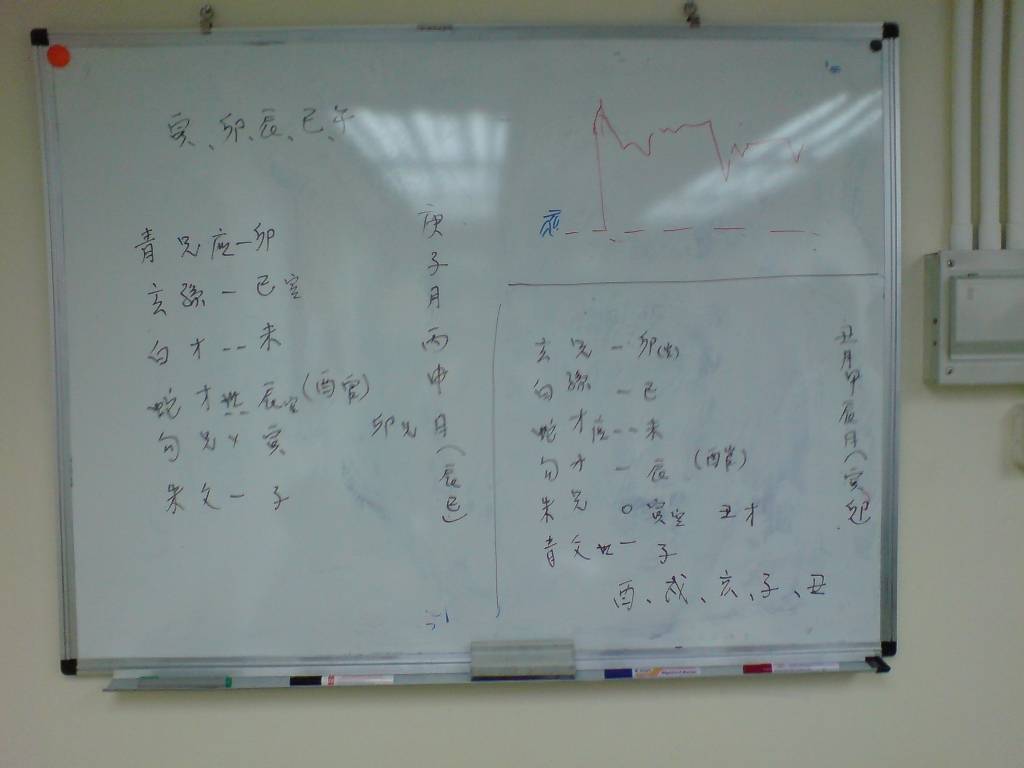 寅、卯、辰、巳、午
青 兄 应一卯
玄 孫 一 巳空
白 才 -- 未
蛇 才 世-- 辰空(酉官)
勾 兄 〃 寅 卯兄
朱 父 一 子
庚子月丙申日(辰巳)
应
玄 兄 一 卯(空)
白 孫 一 巳
蛇 才 应-- 未
勾 才 一 辰 (酉官)
朱 兄 O 寅空 丑才
青 父 世一 子
丑月甲辰日(寅卯)
酉、戌、亥、子、丑